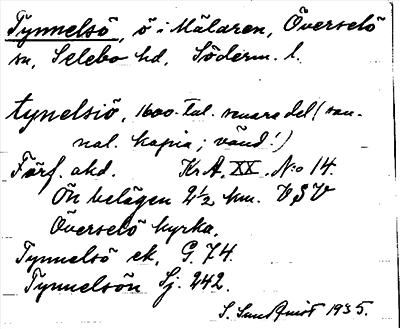 Tynnelsö, ö i Mälaren, Överselö
sn, Selebo hd, Söderm. l.
tynelsiö, 1600-tal. senare del (san-
nal. kopia; vänd!)
Förf. okd. Kr.A. XX. N:o 14.
Ön belägen 2½ km. VSV
Överselö kyrka.
Tynnelsö ek. G. 74.
Tynnelsön Sj. 242.
S. Sundqvist 1935.